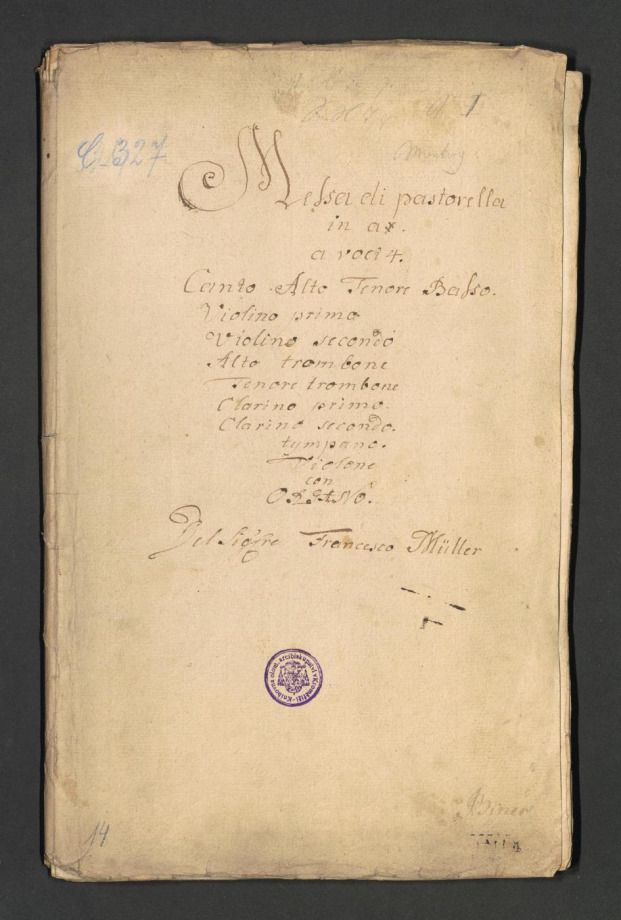 C. 327
1
Messa di pastorella
in a♯.
a voci 4.
Canto Alto Tenore Baſso.
Violino primo
Violino secondo
Alto trombone
Tenore trombone
Clarino primo.
Clarino secondo.
tympano.
Violone
con
ORGANO.
Del Sigre Francesco Müller
14